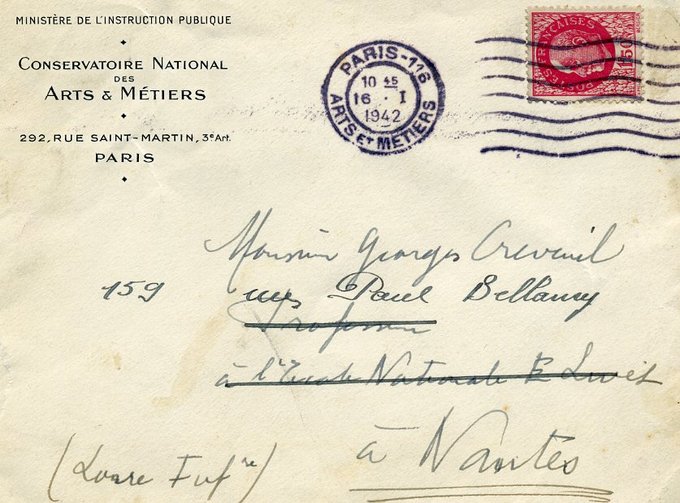 MINISTÈRE DE L'INSTRUCTION PUBLIQUE
CONSERVATOIRE NATIONAL
DES
ARTS & MÉTIERS
292, RUE SAINT-MARTIN, 3e Art.
PARIS
PARIS-116
10 45
16 · I
1942
ARTS ET METIERS
FRANÇAISES
POSTES
1F50
Monsieur Georges Creveuil
159 rue Paul Bellamy
Professeur
à l'Ecole Nationale
à Nantes
(Loire Infre)